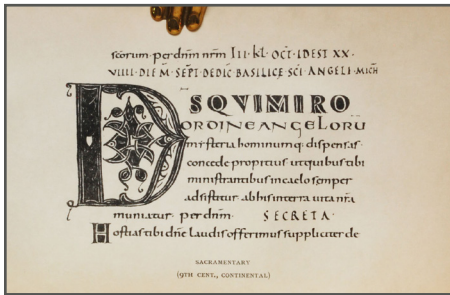 scorum · per dñm nr̄m III · kl · OCT̄ · IDEST XX ·
VIIII · DIE M̄ · SEPT̄ DEDIC̄ BASILICE SC̄I ANGELI · MICH
DS QVI MIRO
ORDINE ANGELORŪ
ministeria hominumq; dispensas ·
concede propitius ut quibus tibi
ministrantibus in caelo semper
adsistitur ab his in terra uita nr̄a
muniatur · per dñm · SECRETA ·
Hostias tibi dñe laudis offerimus suppliciter de
SACRAMENTARY
(9TH CENT., CONTINENTAL)